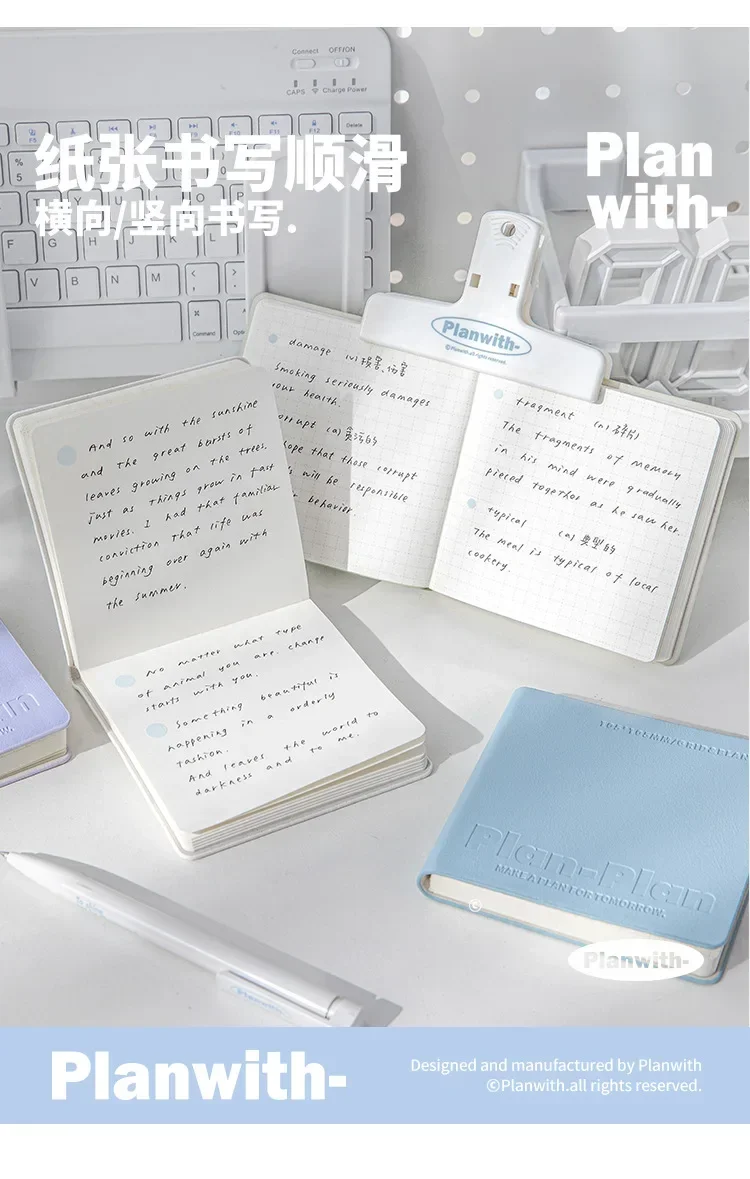 Connect OFF/ON
CAPS Charge Power
F5 F10 F11 F12 Delete
%
5
F G H J K L
V B N M < >
, .
⌘
Command
纸张书写顺滑
横向/竖向书写.
Plan
with-
Planwith-
©Planwith.all rights reserved.
damage (v) 损害、伤害
Smoking seriously damages
your health.
corrupt (a)
hope that those corrupt
will be responsible
behavior.
fragment (n) 碎片
The fragments of memory
in his mind were gradually
pieced together as he saw her.
typical (a) 典型的
The meal is typical of local
cookery.
And so with the sunshine
and the great bursts of
leaves growing on the trees.
just as things grow in fast
movies. I had that familiar
conviction that life was
beginning over again with
the summer.
No matter what type
of animal you are. change
starts with you.
Something beautiful is
happening in a orderly
fashion.
And leaves the world to
darkness and to me.
Plan-Plan
MAKE A PLAN FOR TOMORROW.
©
Planwith-
Planwith-
Designed and manufactured by Planwith
©Planwith.all rights reserved.